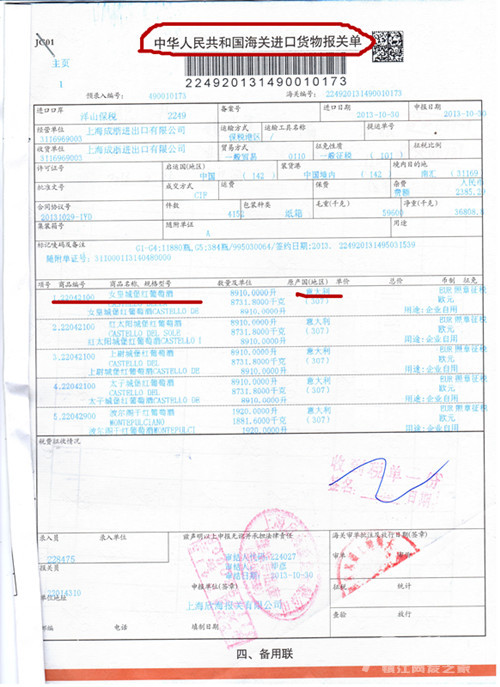 JG01
中华人民共和国海关进口货物报关单
主页
1
224920131490010173
预录入编号: 490010173 海关编号: 224920131490010173
进口口岸 备案号 进口日期 申报日期
洋山保税 2249 2013-10-30 2013-10-30
经营单位 上海成浙进出口有限公司 运输方式 运输工具名称 提运单号
3116969003 保税港区/
收货单位 上海成浙进出口有限公司 贸易方式 征免性质 征税比例
3116969003 一般贸易 0110 一般征税 (101)
许可证号 启运国(地区) 装货港 境内目的地
中国 (142) 中国境内 (142) 南汇 (31169
批准文号 成交方式 运费 保费 杂费 人民币
CIF 费额 2385.20
合同协议号 件数 包装种类 毛重(千克) 净重(千克)
20131029-1YD 4152 纸箱 59600 36808.6
集装箱号 随附单证 用途
A
标记唛码及备注 G1-G4:11880瓶,G5:384瓶/995030064/签约日期:2013. 224920131495031539
随附单证号:311000113140480000
项号 商品编号 商品名称、规格型号 数量及单位 原产国(地区) 单价 总价 币制 征免
1.22042100 女皇城堡红葡萄酒 8910.0000升 意大利 EUR 照章征税
8731.8000千克 (307) 欧元
女皇城堡红葡萄酒CASTELLO DE 8910.0000升 用途:企业自用
2.22042100 红太阳城堡红葡萄酒 8910.0000升 意大利 EUR 照章征税
CASTELLO DEL SOLE 8731.8000千克 (307) 欧元
红太阳城堡红葡萄酒CASTELLO I 8910.0000升 用途:企业自用
3.22042100 上尉城堡红葡萄酒 8910.0000升 意大利 EUR 照章征税
CASTELLO DEL 8731.8000千克 (307) 欧元
上尉城堡红葡萄酒CASTELLO DE 8910.0000升 用途:企业自用
4.22042100 太子城堡红葡萄酒 8910.0000升 意大利 EUR 照章征税
CASTELLO DEL 8731.8000千克 (307) 欧元
太子城堡红葡萄酒CASTELLO DE 8910.0000升 用途:企业自用
5.22042900 波尔图干红葡萄酒 1920.0000升 意大利 EUR 照章征税
MONTEFULCIANO 1881.6000千克 (307) 欧元
1920.0000升 用途:企业自用
税费征收情况
收到税单一份
签名 日期
录入员 录入单位 兹声明以上申报无讹并承担法律责任 海关审单批注及放行日期(签章)
228475 审结人代码:224027 审单
报关员 审结人: 毕彦
审结日期: 2013-10-30
22014310 申报单位(签章) 征税 统计
单位地址 上海欣海报关有限公司
查验 放行
邮编 电话 填制日期
四、备用联
镇江网友之家